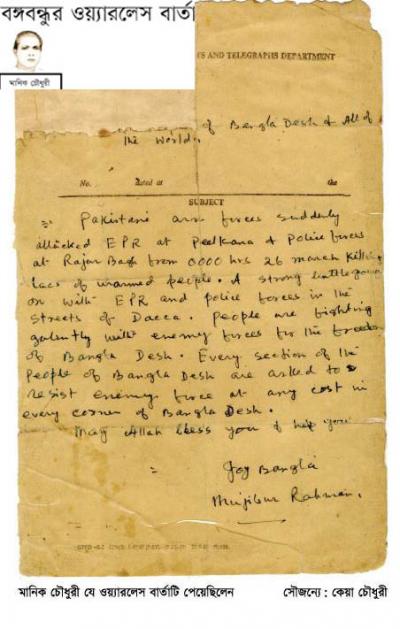 বঙ্গবন্ধুর ওয়্যারলেস বার্তা
মানিক চৌধুরী
S AND TELEGRAPHS DEPARTMENT
of Bangla Desh & All of
the World.
No. dated at the
SUBJECT
Pakistani arm forces suddenly
attacked EPR at Peelkana & Police forces
at Rajar Bagh from 0000 hrs 26 march killing
lacs of unarmed people. A strong battle going
on with EPR and police forces in the
streets of Dacca. People are fighting
galently with enemy forces for the freedom
of Bangla Desh. Every section of the
People of Bangla Desh are asked to
resist enemy force at any cost in
every corner of Bangla Desh.
May Allah bless you & help you
Joy Bangla
Mujibur Rahman.
মানিক চৌধুরী যে ওয়্যারলেস বার্তাটি পেয়েছিলেন সৌজন্যে : কেয়া চৌধুরী